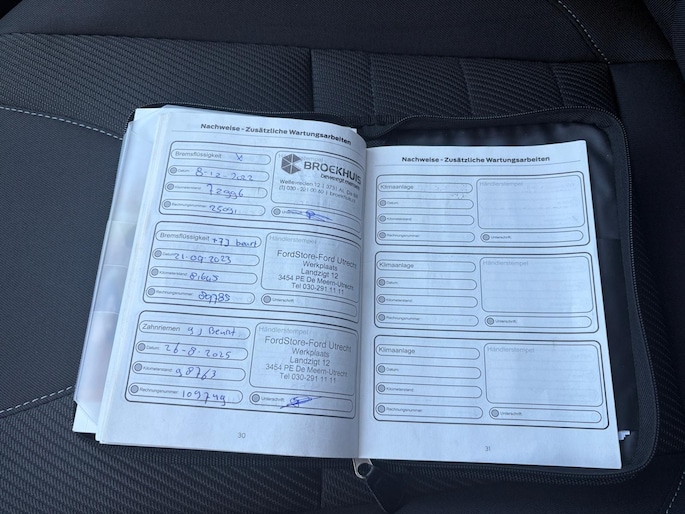 Nachweise - Zusätzliche Wartungsarbeiten
Bremsflüssigkeit x
Datum: 8-12-2022
Kilometerstand: 72996
Rechnungsnummer:
BROEKHUIS
beweegt mensen
Unterschrift:
Bremsflüssigkeit +7j beurt
Datum: 21-09-2023
Kilometerstand:
Rechnungsnummer:
Händlerstempel:
FordStore-Ford Utrecht
Werkplaats
Landzigt 12
3454 PE De Meern-Utrecht
Tel 030-291 11 11
Unterschrift:
Zahnriemen 9j Beurt
Datum: 26-8-2025
Kilometerstand: 98763
Rechnungsnummer: 109749
Händlerstempel:
FordStore-Ford Utrecht
Werkplaats
Landzigt 12
3454 PE De Meern-Utrecht
Tel 030-291 11 11
Unterschrift:
30
Nachweise - Zusätzliche Wartungsarbeiten
Klimaanlage
Datum:
Kilometerstand:
Rechnungsnummer:
Händlerstempel:
Unterschrift:
Klimaanlage
Datum:
Kilometerstand:
Rechnungsnummer:
Händlerstempel:
Unterschrift:
Klimaanlage
Datum:
Kilometerstand:
Rechnungsnummer:
Händlerstempel:
Unterschrift:
31